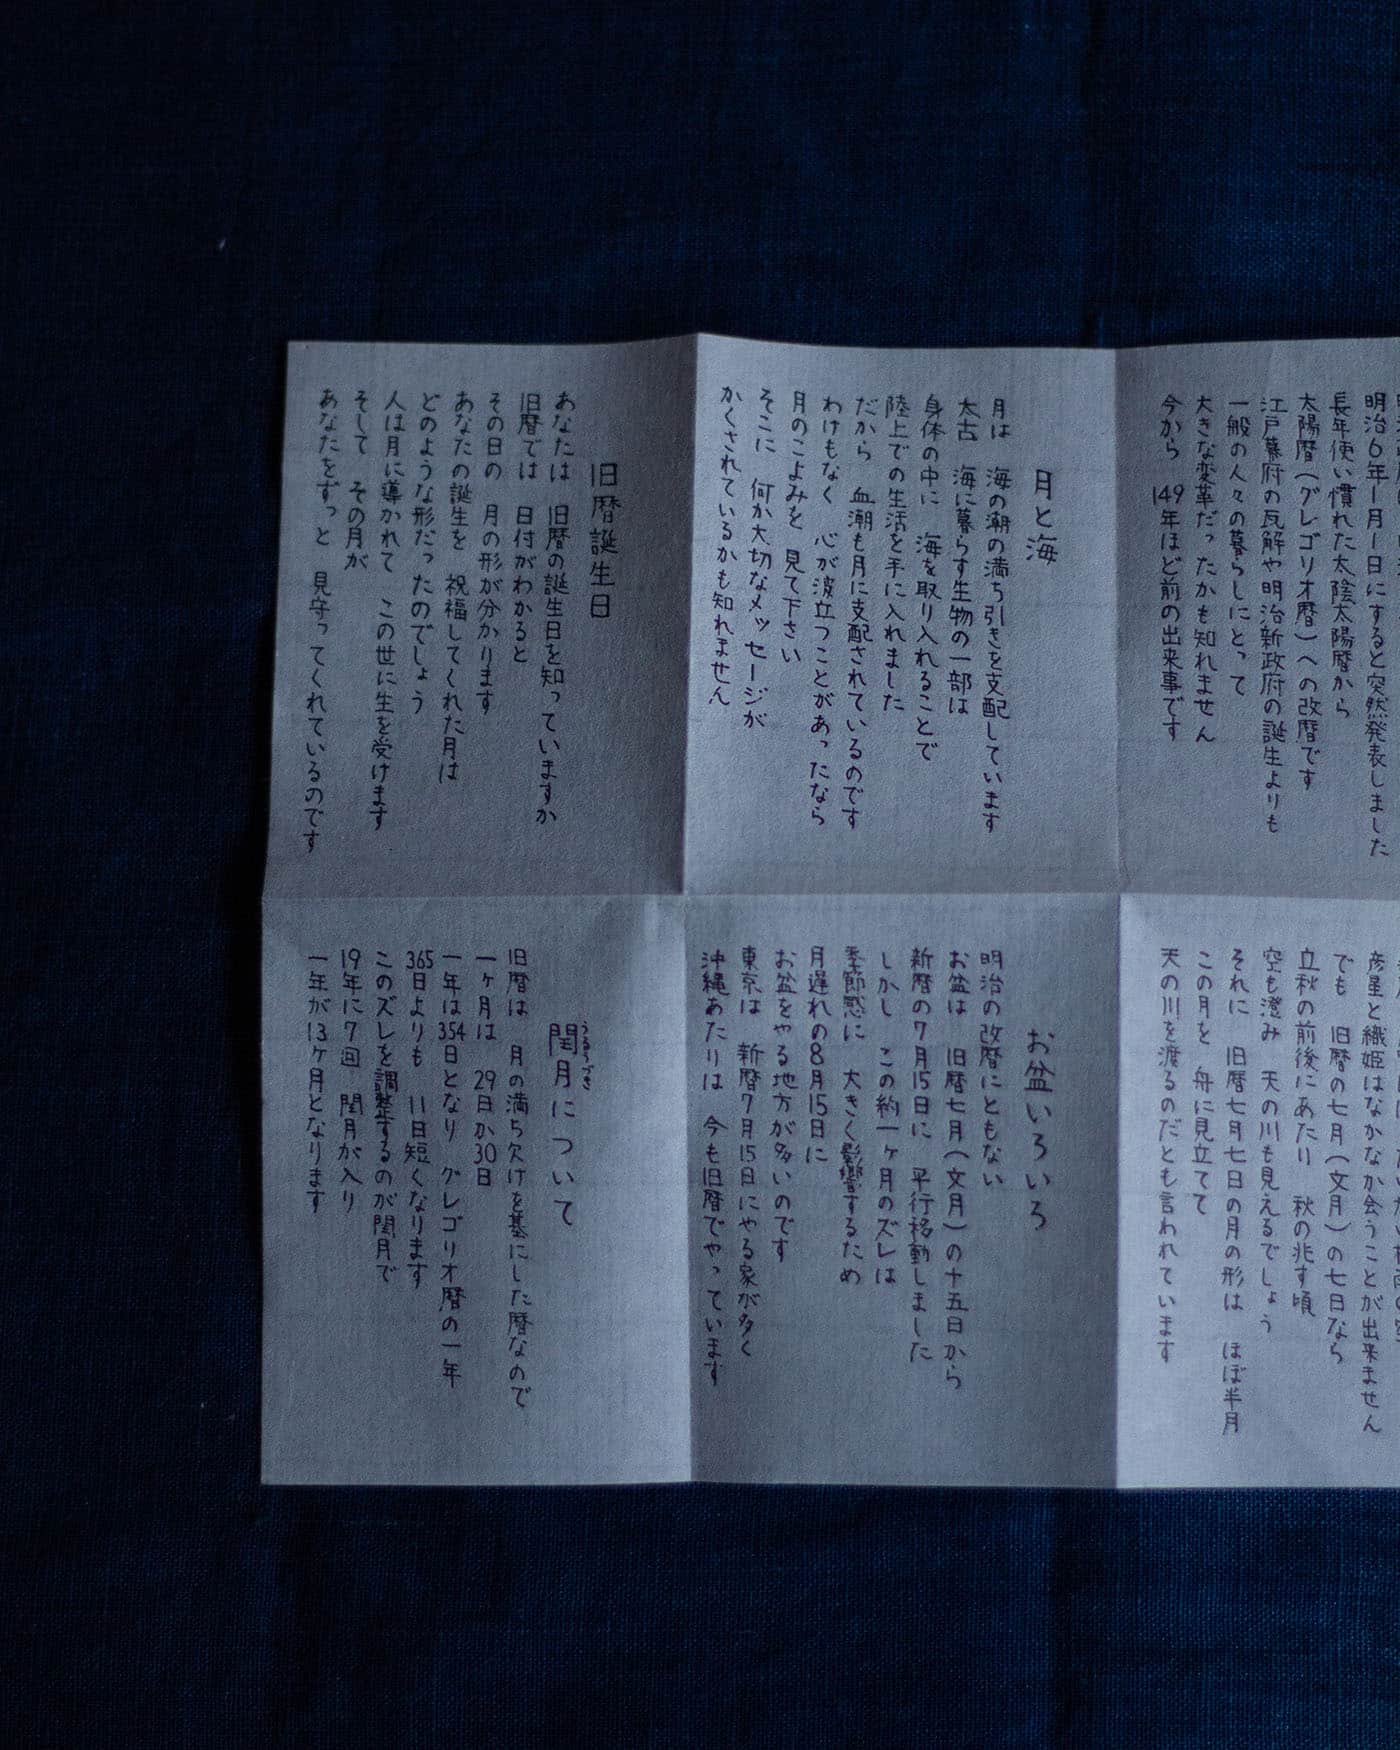 明治6年1月1日にすると突然発表しました
長年使い慣れた太陰太陽暦から
太陽暦(グレゴリオ暦)への改暦です
江戸幕府の瓦解や明治新政府の誕生よりも
一般の人々の暮らしにとって
大きな変革だったかも知れません
今から 149年ほど前の出来事です
月と海
月は 海の潮の満ち引きを支配しています
太古 海に暮らす生物の一部は
身体の中に 海を取り入れることで
陸上での生活を手に入れました
だから 血潮も月に支配されているのです
わけもなく 心が波立つことがあったなら
月のこよみを 見て下さい
そこに 何か大切なメッセージが
かくされているかも知れません
旧暦誕生日
あなたは 旧暦の誕生日を知っていますか
旧暦では 日付がわかると
その日の 月の形が分かります
あなたの誕生を 祝福してくれた月は
どのような形だったのでしょう
人は月に導かれて この世に生を受けます
そして その月が
あなたをずっと 見守ってくれているのです
彦星と織姫はなかなか会うことが出来ません
でも 旧暦の七月(文月)の七日なら
立秋の前後にあたり 秋の兆す頃
空も澄み 天の川も見えるでしょう
それに 旧暦七月七日の月の形は ほぼ半月
この月を 舟に見立てて
天の川を渡るのだとも言われています
お盆いろいろ
明治の改暦にともない
お盆は 旧暦七月(文月)の十五日から
新暦の7月15日に 平行移動しました
しかし この約一ヶ月のズレは
季節感に 大きく影響するため
月遅れの8月15日に
お盆をやる地方が多いのです
東京は 新暦7月15日にやる家が多く
沖縄あたりは 今も旧暦でやっています
閏月について
うるうづき
旧暦は 月の満ち欠けを基にした暦なので
一ヶ月は 29日か30日
一年は354日となり グレゴリオ暦の一年
365日よりも 11日短くなります
このズレを調整するのが閏月で
19年に7回 閏月が入り
一年が13ヶ月となります